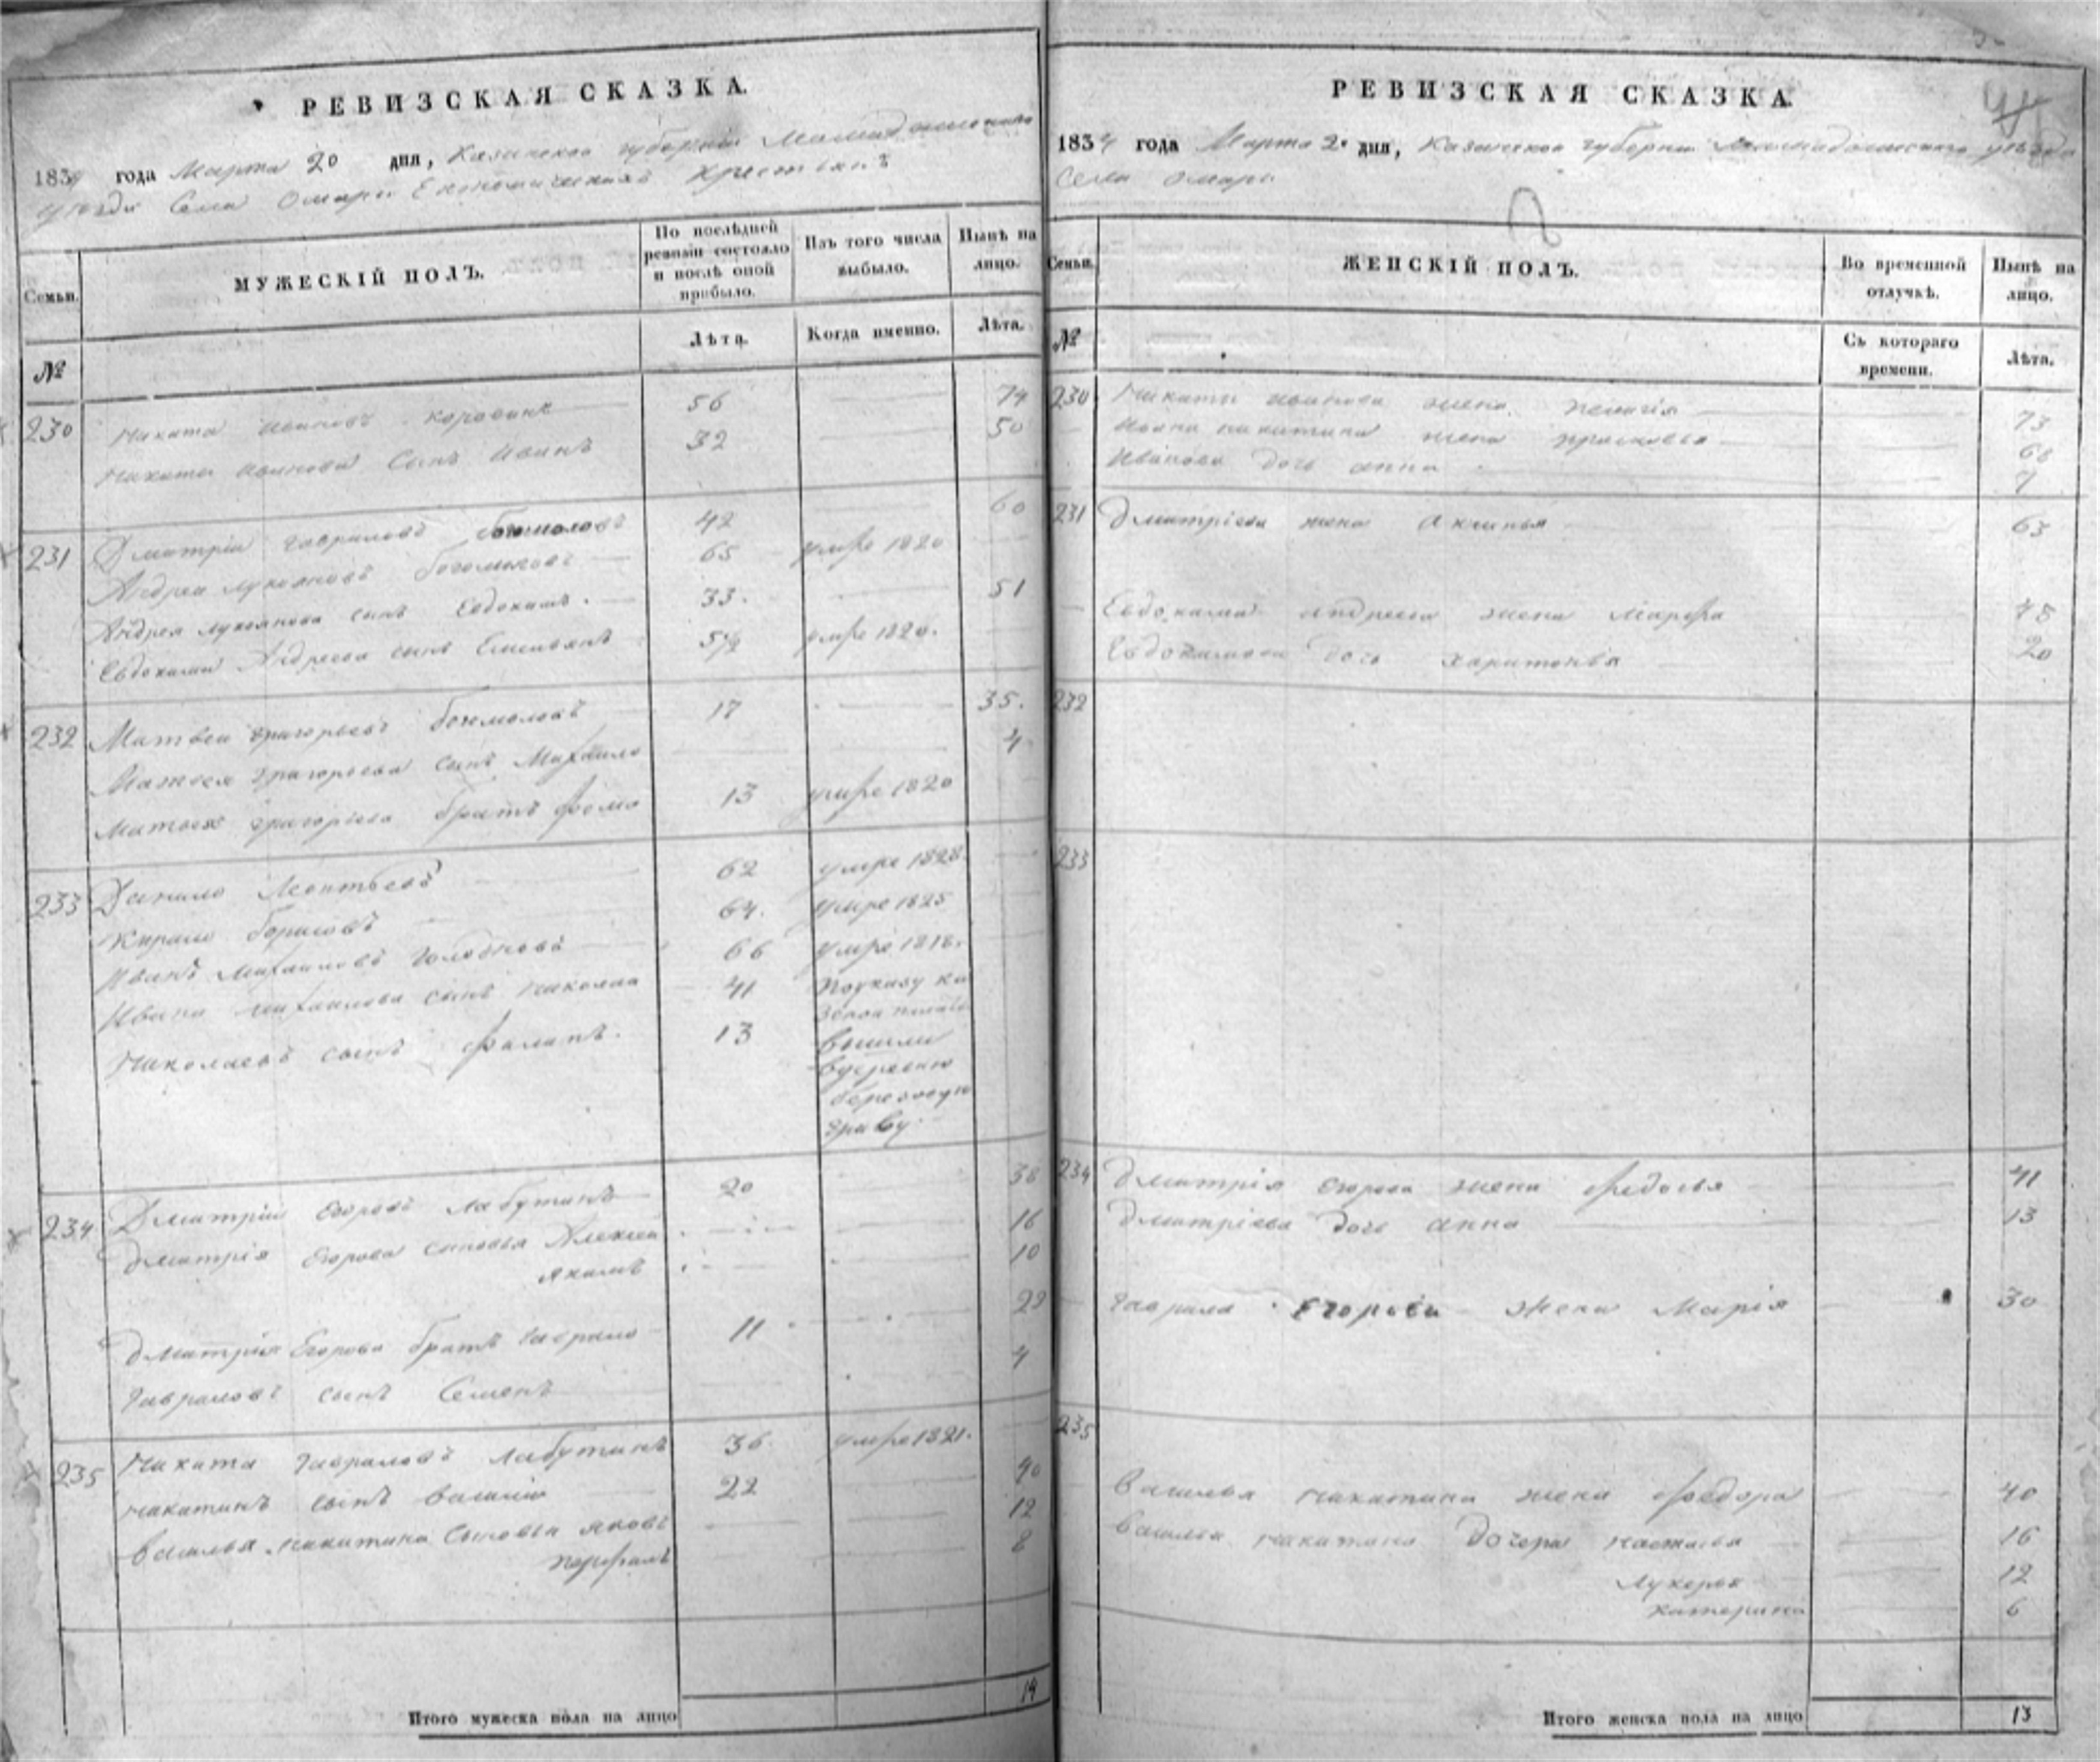 РЕВИЗСКАЯ СКАЗКА.
1834 года Марта 20 дня, Казанской губернии Мамадышскаго
уезда Села Омары Економическихъ крестьянъ
Семьи.
МУЖЕСКІЙ ПОЛЪ.
По послѣдней ревизіи состояло и послѣ оной прибыло.
Изъ того числа выбыло.
Нынѣ на лицо.
№
Лѣта.
Когда именно.
Лѣта.
230 Никита Ивановъ Коровинъ 56 74
Никиты Иванова сынъ Иванъ 32 50
231 Дмитрій Гавриловъ Богомоловъ 42 60
Андрей Лукояновъ Богомоловъ 65 умре 1820
Андрея Лукоянова сынъ Евдокимъ. 33. 51
Евдокима Андреева сынъ Емельянъ умре 1820.
232 Матвей Григорьевъ Богомоловъ 17 35.
Матвея Григорьева сынъ Михайло 4
Матвея Григорьева братъ Фома 13 умре 1820
233 Данило Леонтьевъ 62 умре 1828.
Кирило Борисовъ 64. умре 1825
Иванъ Михайловъ 66 умре 1818.
Ивана Михайлова сынъ Николай 41 По указу ка
Николаевъ сынъ Филипъ. 13
вышли
234 Дмитрій Егоровъ Лабутинъ 20 38
Дмитрія Егорова сыновья Алексей 16
Якимъ 10
Дмитрія Егорова братъ Гаврило 11 29
Гавриловъ сынъ Семенъ 4
235 Никита Гавриловъ Лабутинъ 36. умре 1821.
Никитинъ сынъ Василій 22 40
Василья Никитина сыновья Яковъ 12
Перфилъ 8
Итого мужеска пола на лицо 14
РЕВИЗСКАЯ СКАЗКА.
1834 года Марта 20 дня, Казанской губерніи Мамадышскаго уезда
Села Омары
Семьи.
ЖЕНСКІЙ ПОЛЪ.
Во временной отлучкѣ.
Нынѣ на лицо.
№
Съ котораго времени.
Лѣта.
230 Никиты Иванова жена Пелагія 73
Ивана Никитина жена Прасковья 68
Иванова дочь Анна 7
231 Дмитріева жена Акилина 63
Евдокима Андреева жена Марфа 45
Евдокимова дочь Харитонья 20
232
233
234 Дмитрія Егорова жена Федосья 41
Дмитріева дочь Анна 13
Гаврила Егорова жена Марія 30
235
Василья Никитина жена Федора 40
Василья Никитина дочери Настасья 16
Лукерья 12
Катерина 6
Итого женска пола на лицо 13